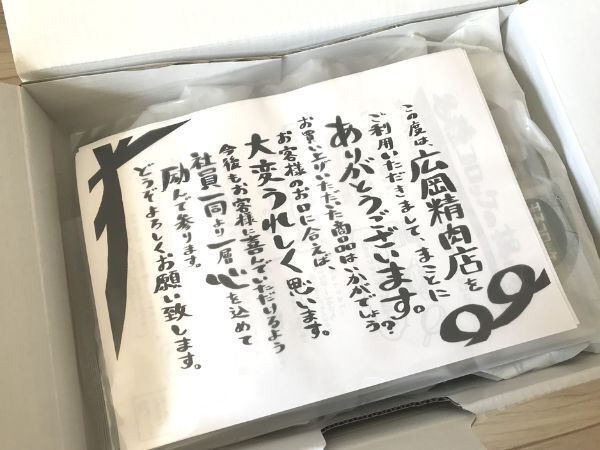 この度は、広岡精肉店を
ご利用いただきまして、まことに
ありがとうございます。
お買い上げいただいた商品はいかがでしょう?
お客様のお口に合えば、
大変うれしく思います。
今後もお客様に喜んでいただけるよう
社員一同より一層心を込めて
励んで参ります。
どうぞよろしくお願い致します。